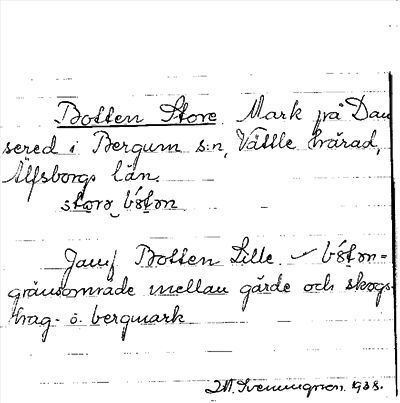 Botten Store. Mark på Dan
sered i Bergum s:n, Vättle härad,
Älfsborgs län.
storə bótən
Jämf Botten Lille. – bótən=
gränsområde mellan gärde och skogs
hag- o. bergmark
Svenungson. 1938.